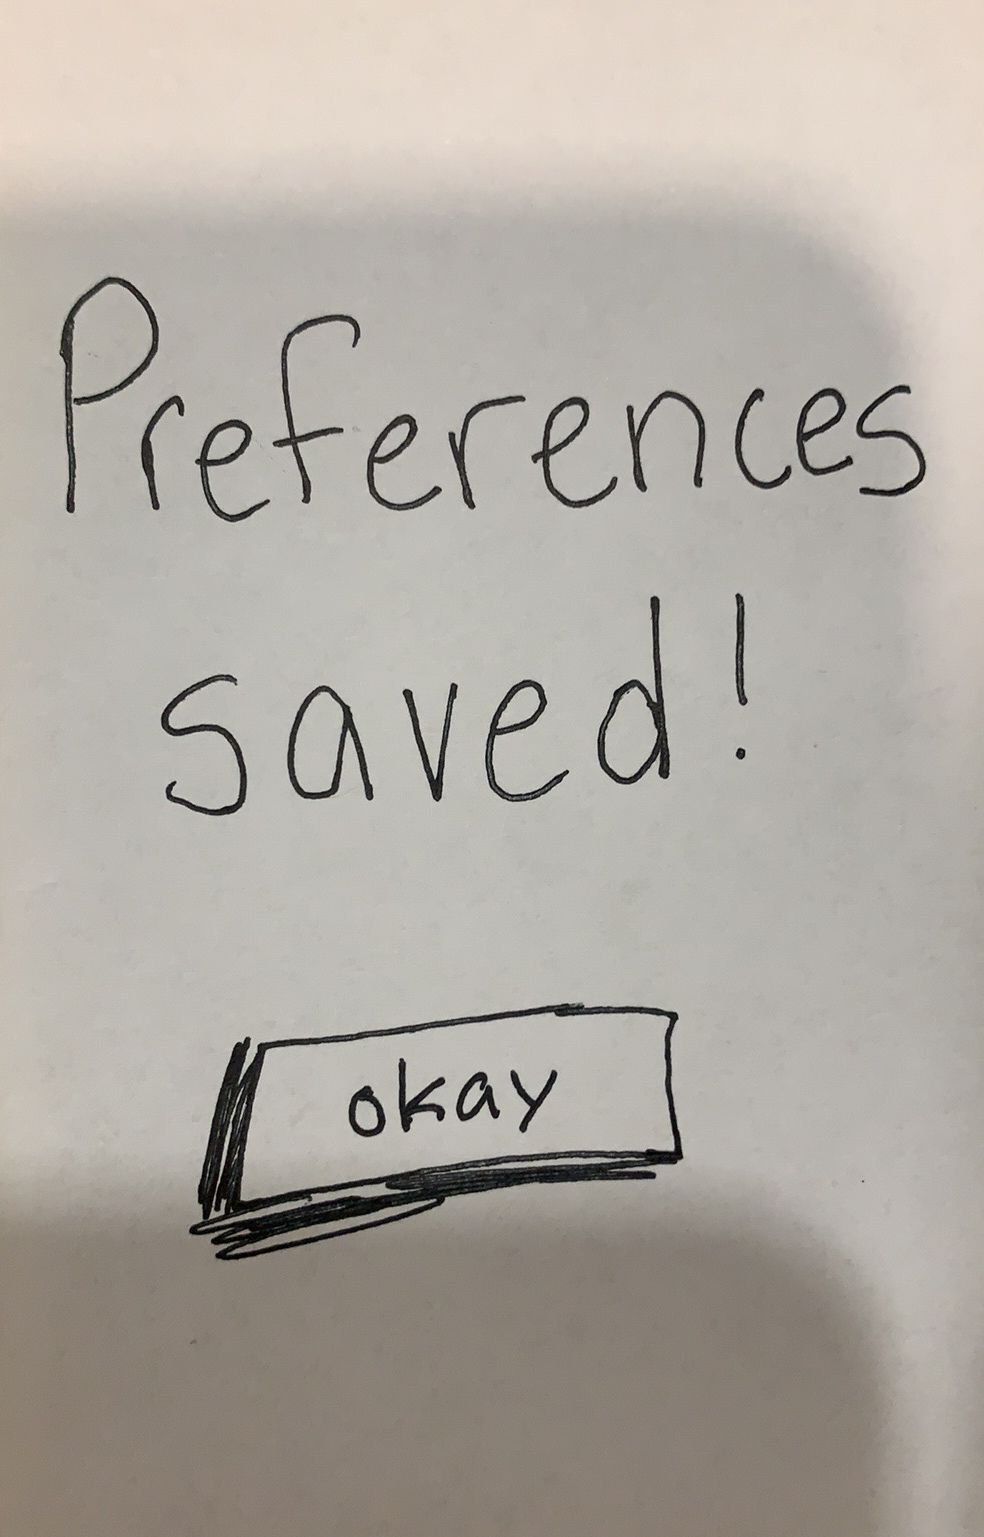 Preferences
saved!
okay